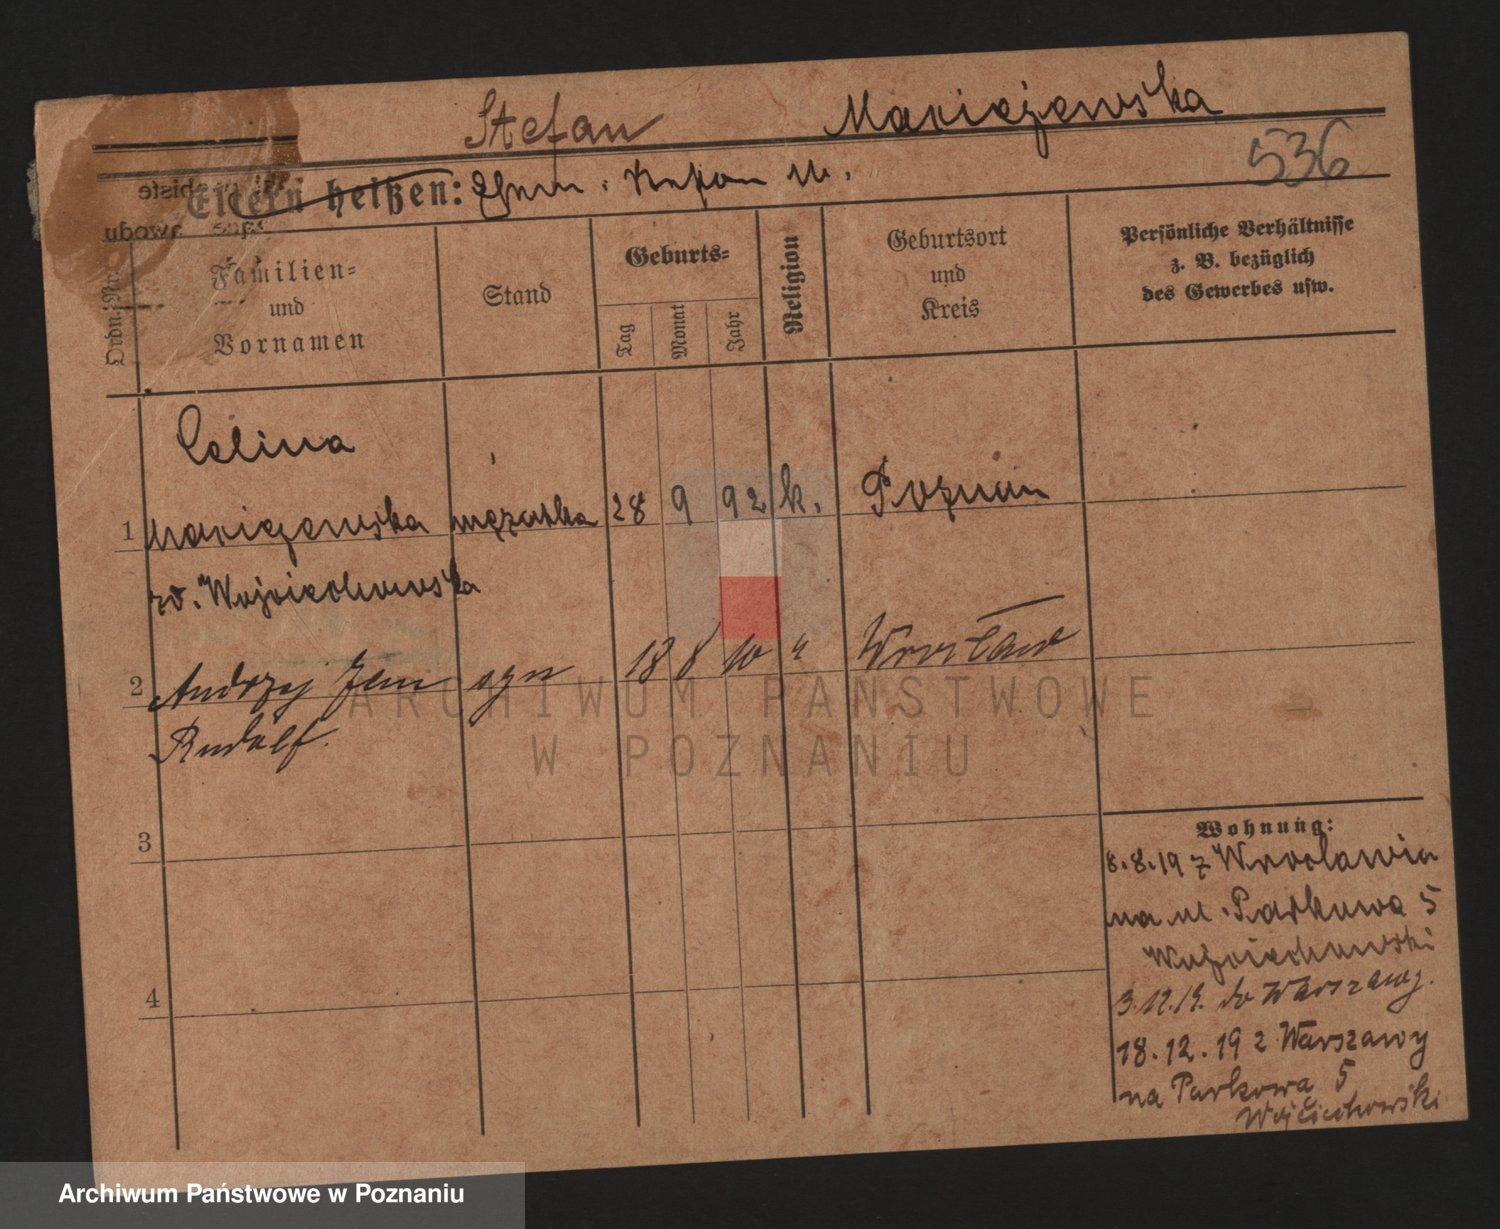 Stefan Maciejewska
536
Eltern heißen: Ehem. Stefan M.
Ordn.-Nr.
Familien-
und
Vornamen
Stand
Geburts-
Tag
Monat
Jahr
Religion
Geburtsort
und
Kreis
Persönliche Verhältnisse
z. B. bezüglich
des Gewerbes usw.
Celina
1 Maciejewska mężatka 28 9 92 k. Poznań
zd. Wojciechowska
2 Andrzej Jan syn 18 8 10 " Wrocław
Rudolf.
3
4
Wohnung:
8.8.19 z Wrocławia
na ul. Parkowa 5
Wojciechowski
3.12.19. do Warszawy.
18.12.19 z Warszawy
na Parkowa 5
Wojciechowski
ARCHIWUM PAŃSTWOWE
W POZNANIU
Archiwum Państwowe w Poznaniu